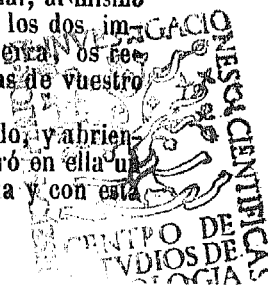 al mismo
los dos im-
os re-
as de vuestro
lo, y abrien-
ró en ella u
a y con esta
GACIO
NES CIENTIFIC
CENTRO DE
TVDIOS DE
OLOGIA